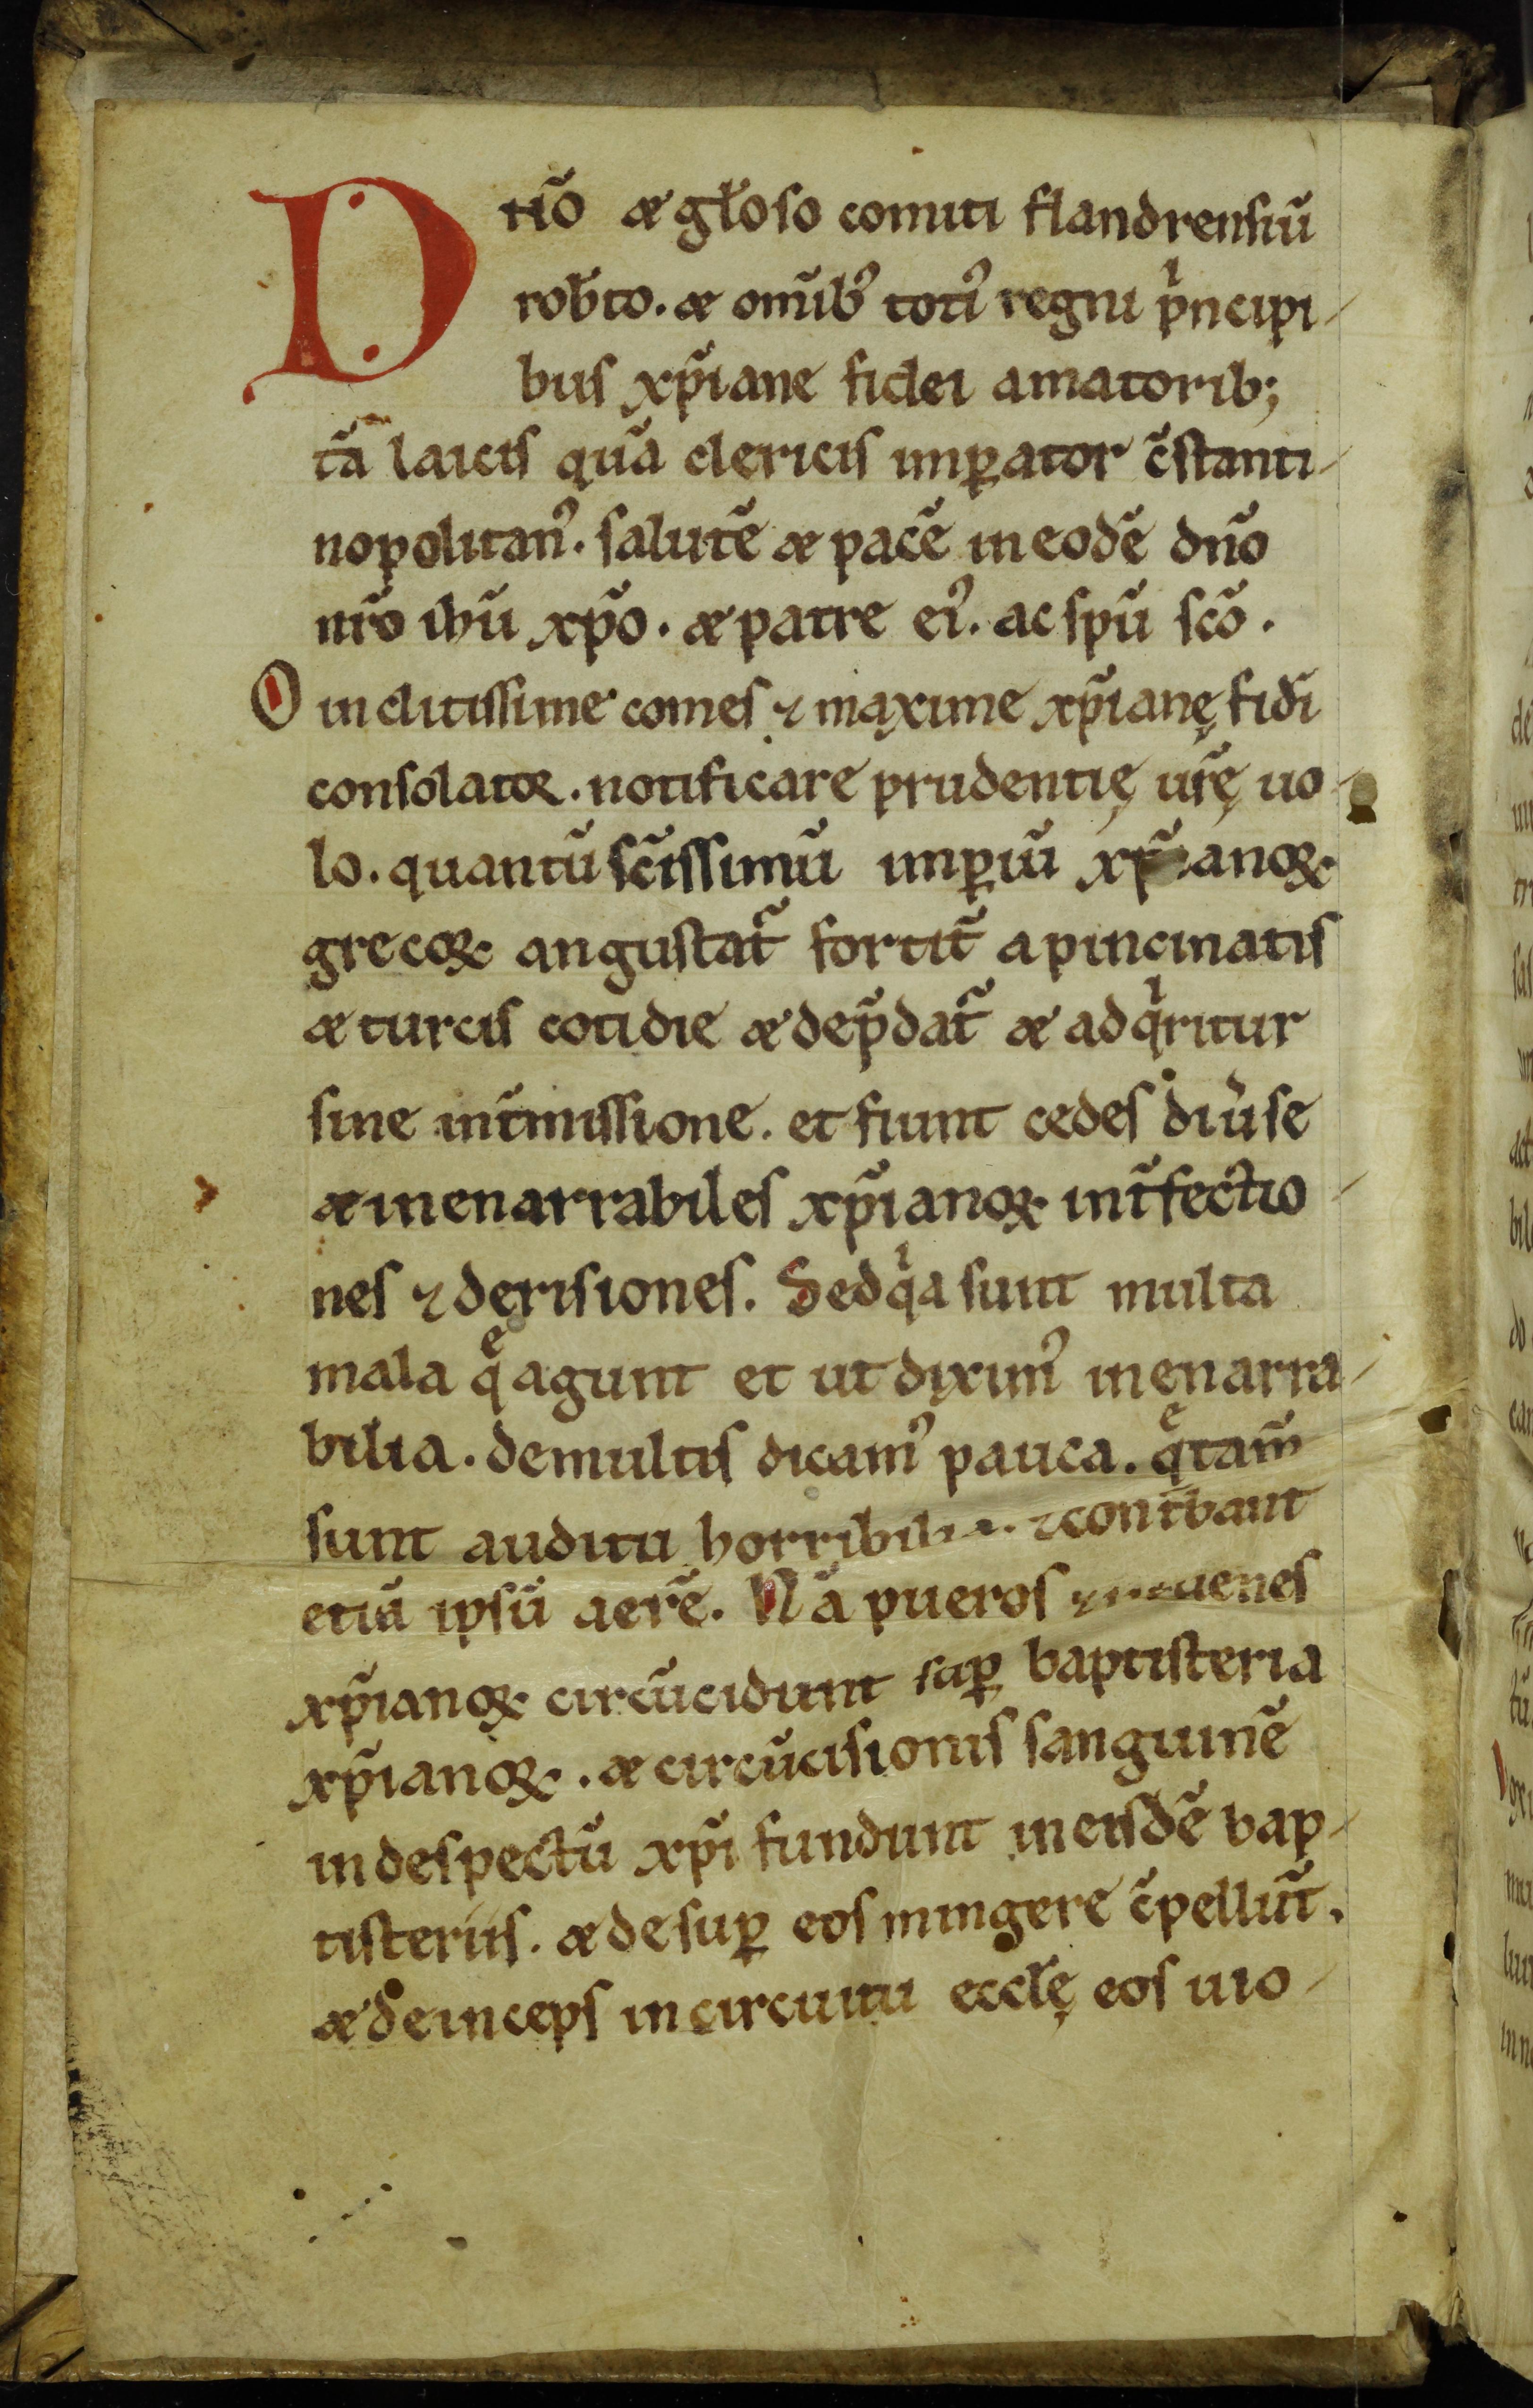 Dnõ æ gl̃oso comiti flandrensiũ
rob̃to. æ omĩbꝰ totiꝰ regni pͥncipi-
bus xp̃iane fidei amatorib;
tã laicis quã clericis imꝑator c̃stanti-
nopolitanꝰ. salutẽ æ pacẽ in eodẽ dño
nr̃o ihũ xp̃o. æ patre eiꝰ. ac spũ scõ.
O inclitissime comes ⁊ maxime xp̃ianę fidi
consolatoꝛ. notificare prudentię ur̃ę uo-
lo. quantũ sc̃issimũ imꝑiũ xp̃ianoꝝ
grecoꝝ angustat᷑ fortit̃ a pincinatis
æ turcis cotidie æ dep̃dat᷑ æ adqͥritur
sine int̃missione. et fiunt cedes diu̾se
æ inenarrabiles xp̃ianoꝝ int̃fectio-
nes ⁊ derisiones. Sed qͥa sunt multa
mala qͤ agunt et ut diximꝰ inenarra-
bilia. de multis dicamꝰ pauca. qͤ tam̃
sunt auditu horribilia. ⁊ cont̃bant
etiã ipsũ aerẽ. Nã pueros ⁊ iuuenes
xp̃ianoꝝ circũcidunt suꝑ baptisteria
xp̃ianoꝝ. æ circũcisionis sanguinẽ
in despectũ xp̃i fundunt in eisdẽ bap-
tisteriis. æ desuꝑ eos mingere c̃pellũt.
æ deinceps in circuitu eccl̃ę eos uio-